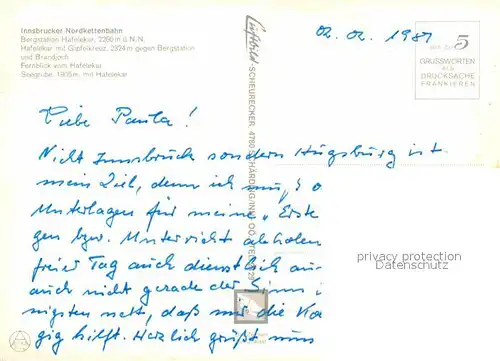 Innsbrucker Nordkettenbahn
Bergstation Hafelekar, 2260 m ü. N. N.
Hafelekar mit Gipfelkreuz, 2334 m gegen Bergstation
und Brandjoch
Fernblick vom Hafelekar
Seegrube, 1905 m, mit Hafelekar
02. 02. 1987
MIT ZU 5
GRUSSWORTEN
ALS
DRUCKSACHE
FRANKIEREN
Luftbild SCHEURECKER 4780 SCHÄRDING/INN OÖ
Liebe Paula!
Nicht Innsbruck sondern Augsburg ist
mein Ziel, denn ich muß
Unterlagen für meine „Erste
gen bzw. Unterricht abholen
freier Tag auch dienstlich
auch nicht gerade der Sinn
nigsten nett, daß mir die
gig hilft. Herzlich grüßt
privacy protection
Datenschutz